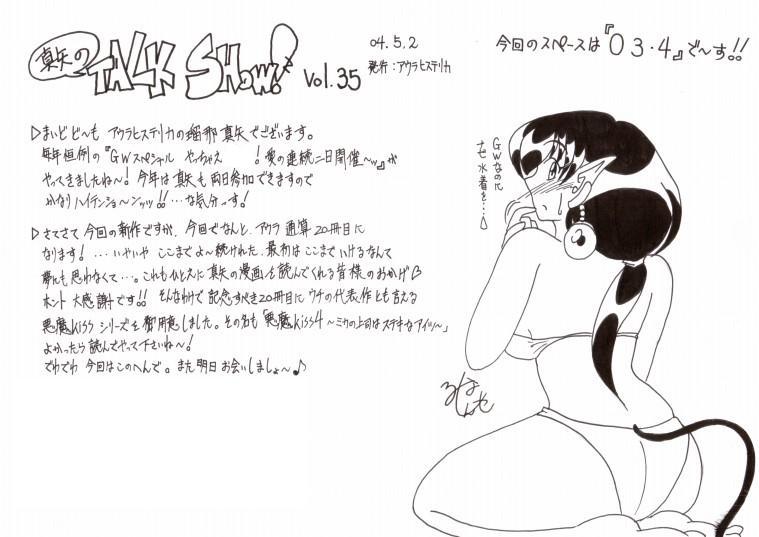 真矢の TALK SHOW! Vol.35
04.5.2
発行:アウラヒステリカ
今回のスペースは『03・4』で〜す!!
▷まいどど〜も アウラヒステリカの瑠那真矢でございます。
毎年恒例の『GWスペシャル やっちゃえ !愛の連続二日開催〜w』が
やってきましたね〜!今年は真矢も両日参加できますので
かなりハイテンショ〜ンッッ!!…な気分っす!
▷さてさて今回の新作ですが、今回でなんと、アウラ 通算20冊目に
なります!…いやいや ここまでよ〜続けれた、最初はここまでいけるなんて
夢にも思わなくて…。これもひとえに真矢の漫画を読んでくれる皆様のおかげ
ホント 大感謝です!!そんなわけで 記念すべき20冊目に ウチの代表作とも言える
悪魔kiss シリーズを御用意しました。その名も「悪魔kiss4 〜ミカの上司はステキなアイツ〜」
よかったら読んでやって下さいね〜!
でわでわ 今回はこのへんで。また明日お会いしましょ〜♪
GWなのに
なぜ水着を…
るなしんや